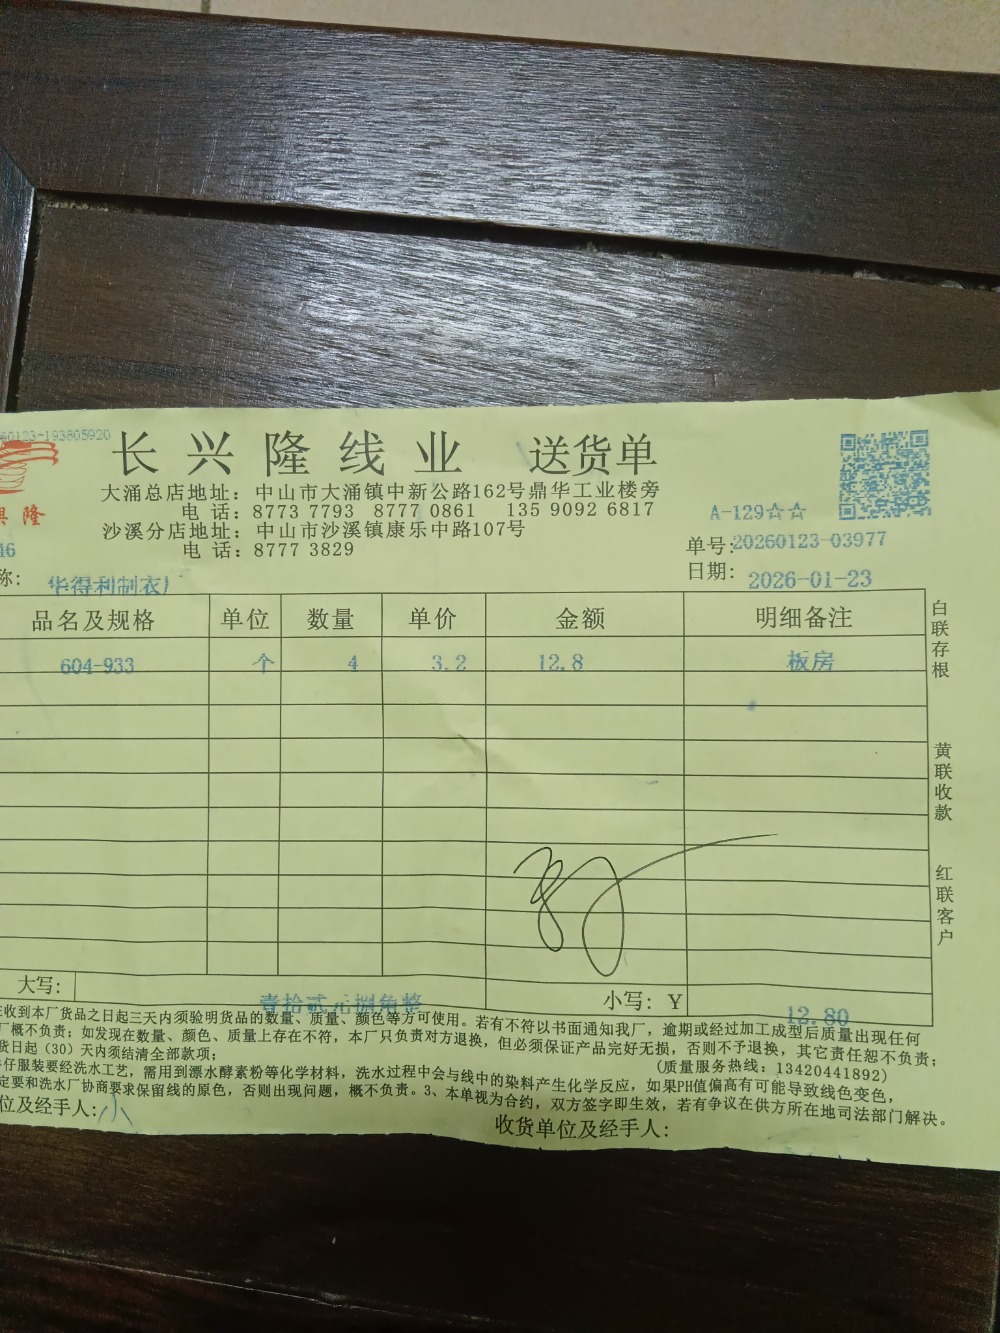 60123-193805920
长兴隆线业 送货单
大涌总店地址：中山市大涌镇中新公路162号鼎华工业楼旁
电 话：8773 7793 8777 0861 135 9092 6817
沙溪分店地址：中山市沙溪镇康乐中路107号
电 话：8777 3829
興隆
A-129☆☆
46
单号：20260123-03977
称：华得利制衣厂
日期：2026-01-23
品名及规格 单位 数量 单价 金额 明细备注
604-933 个 4 3.2 12.8 板房
白联存根
黄联收款
红联客户
大写：壹拾贰元捌角整 小写：Y 12.80
收到本厂货品之日起三天内须验明货品的数量、质量、颜色等方可使用。若有不符以书面通知我厂，逾期或经过加工成型后质量出现任何
厂概不负责；如发现在数量、颜色、质量上存在不符，本厂只负责对方退换，但必须保证产品完好无损，否则不予退换，其它责任恕不负责；
货日起（30）天内须结清全部款项；
（质量服务热线：13420441892）
仔服装要经洗水工艺，需用到漂水酵素粉等化学材料，洗水过程中会与线中的染料产生化学反应，如果PH值偏高有可能导致线色变色，
定要和洗水厂协商要求保留线的原色，否则出现问题，概不负责。3、本单视为合约，双方签字即生效，若有争议在供方所在地司法部门解决。
位及经手人：小
收货单位及经手人：